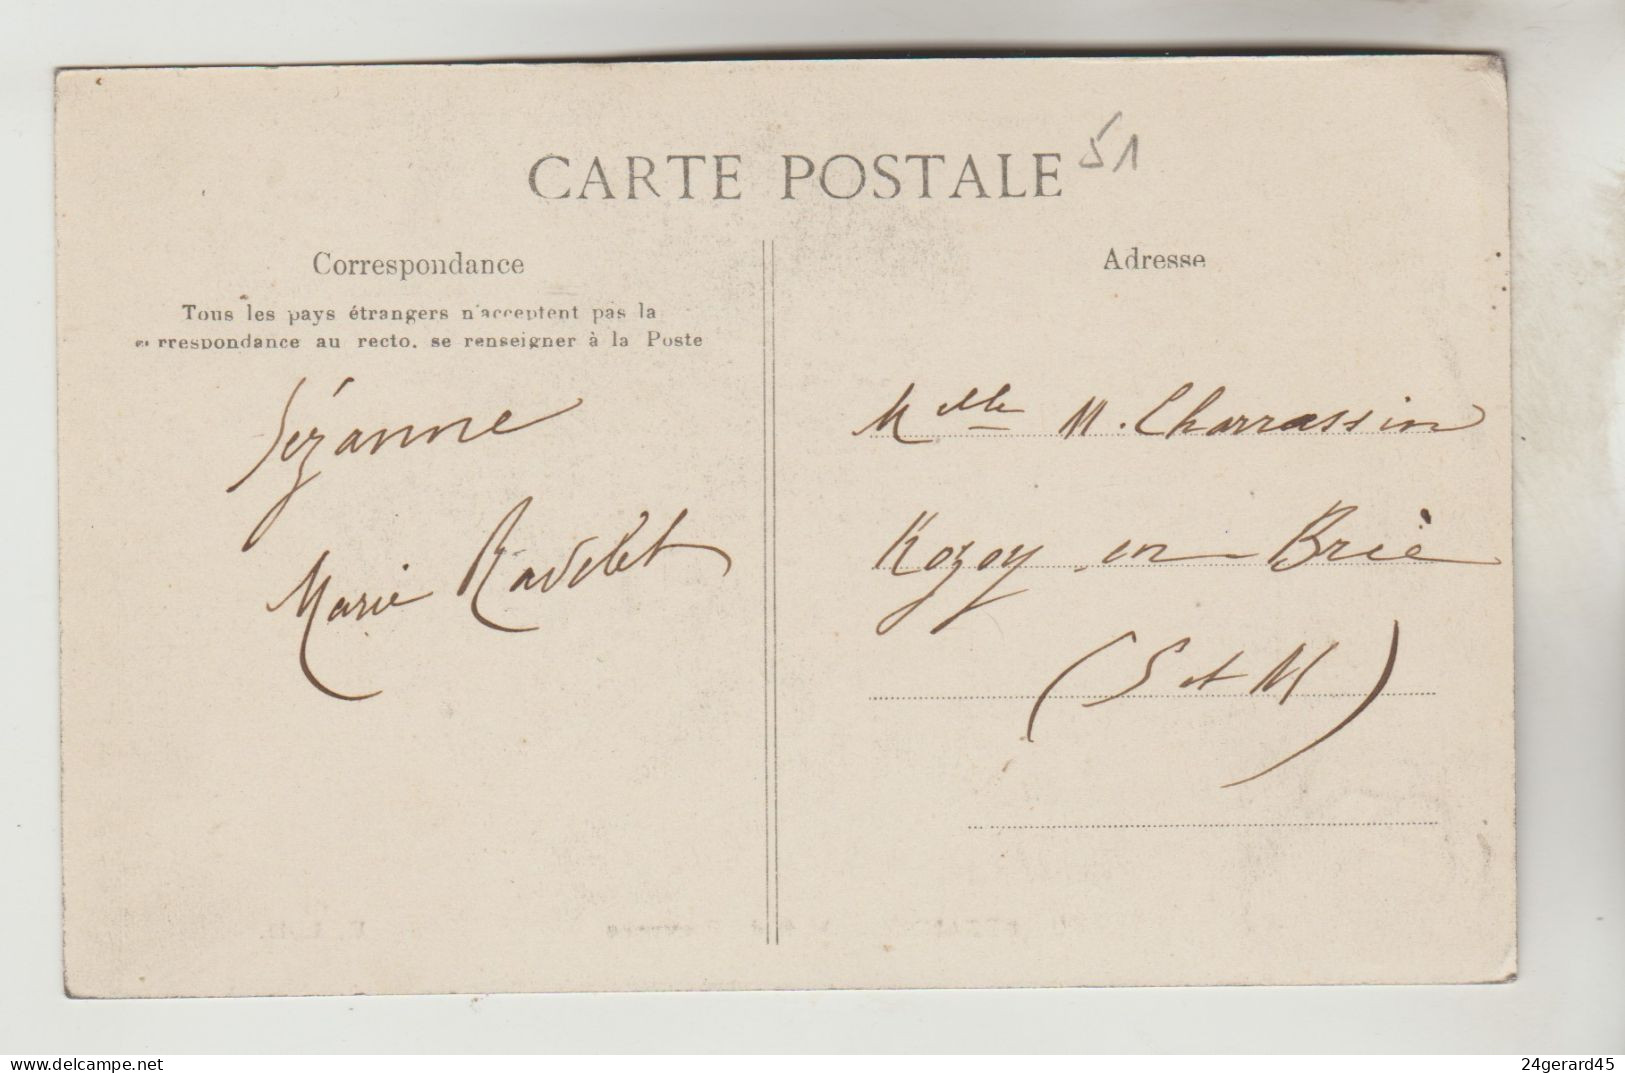 CARTE POSTALE 51
Correspondance
Tous les pays étrangers n'acceptent pas la
correspondance au recto, se renseigner à la Poste
Sézanne
Marie Ravelet
Adresse
Melle M. Charrassin
Rozoy-en-Brie
(S et M)
24gerard45